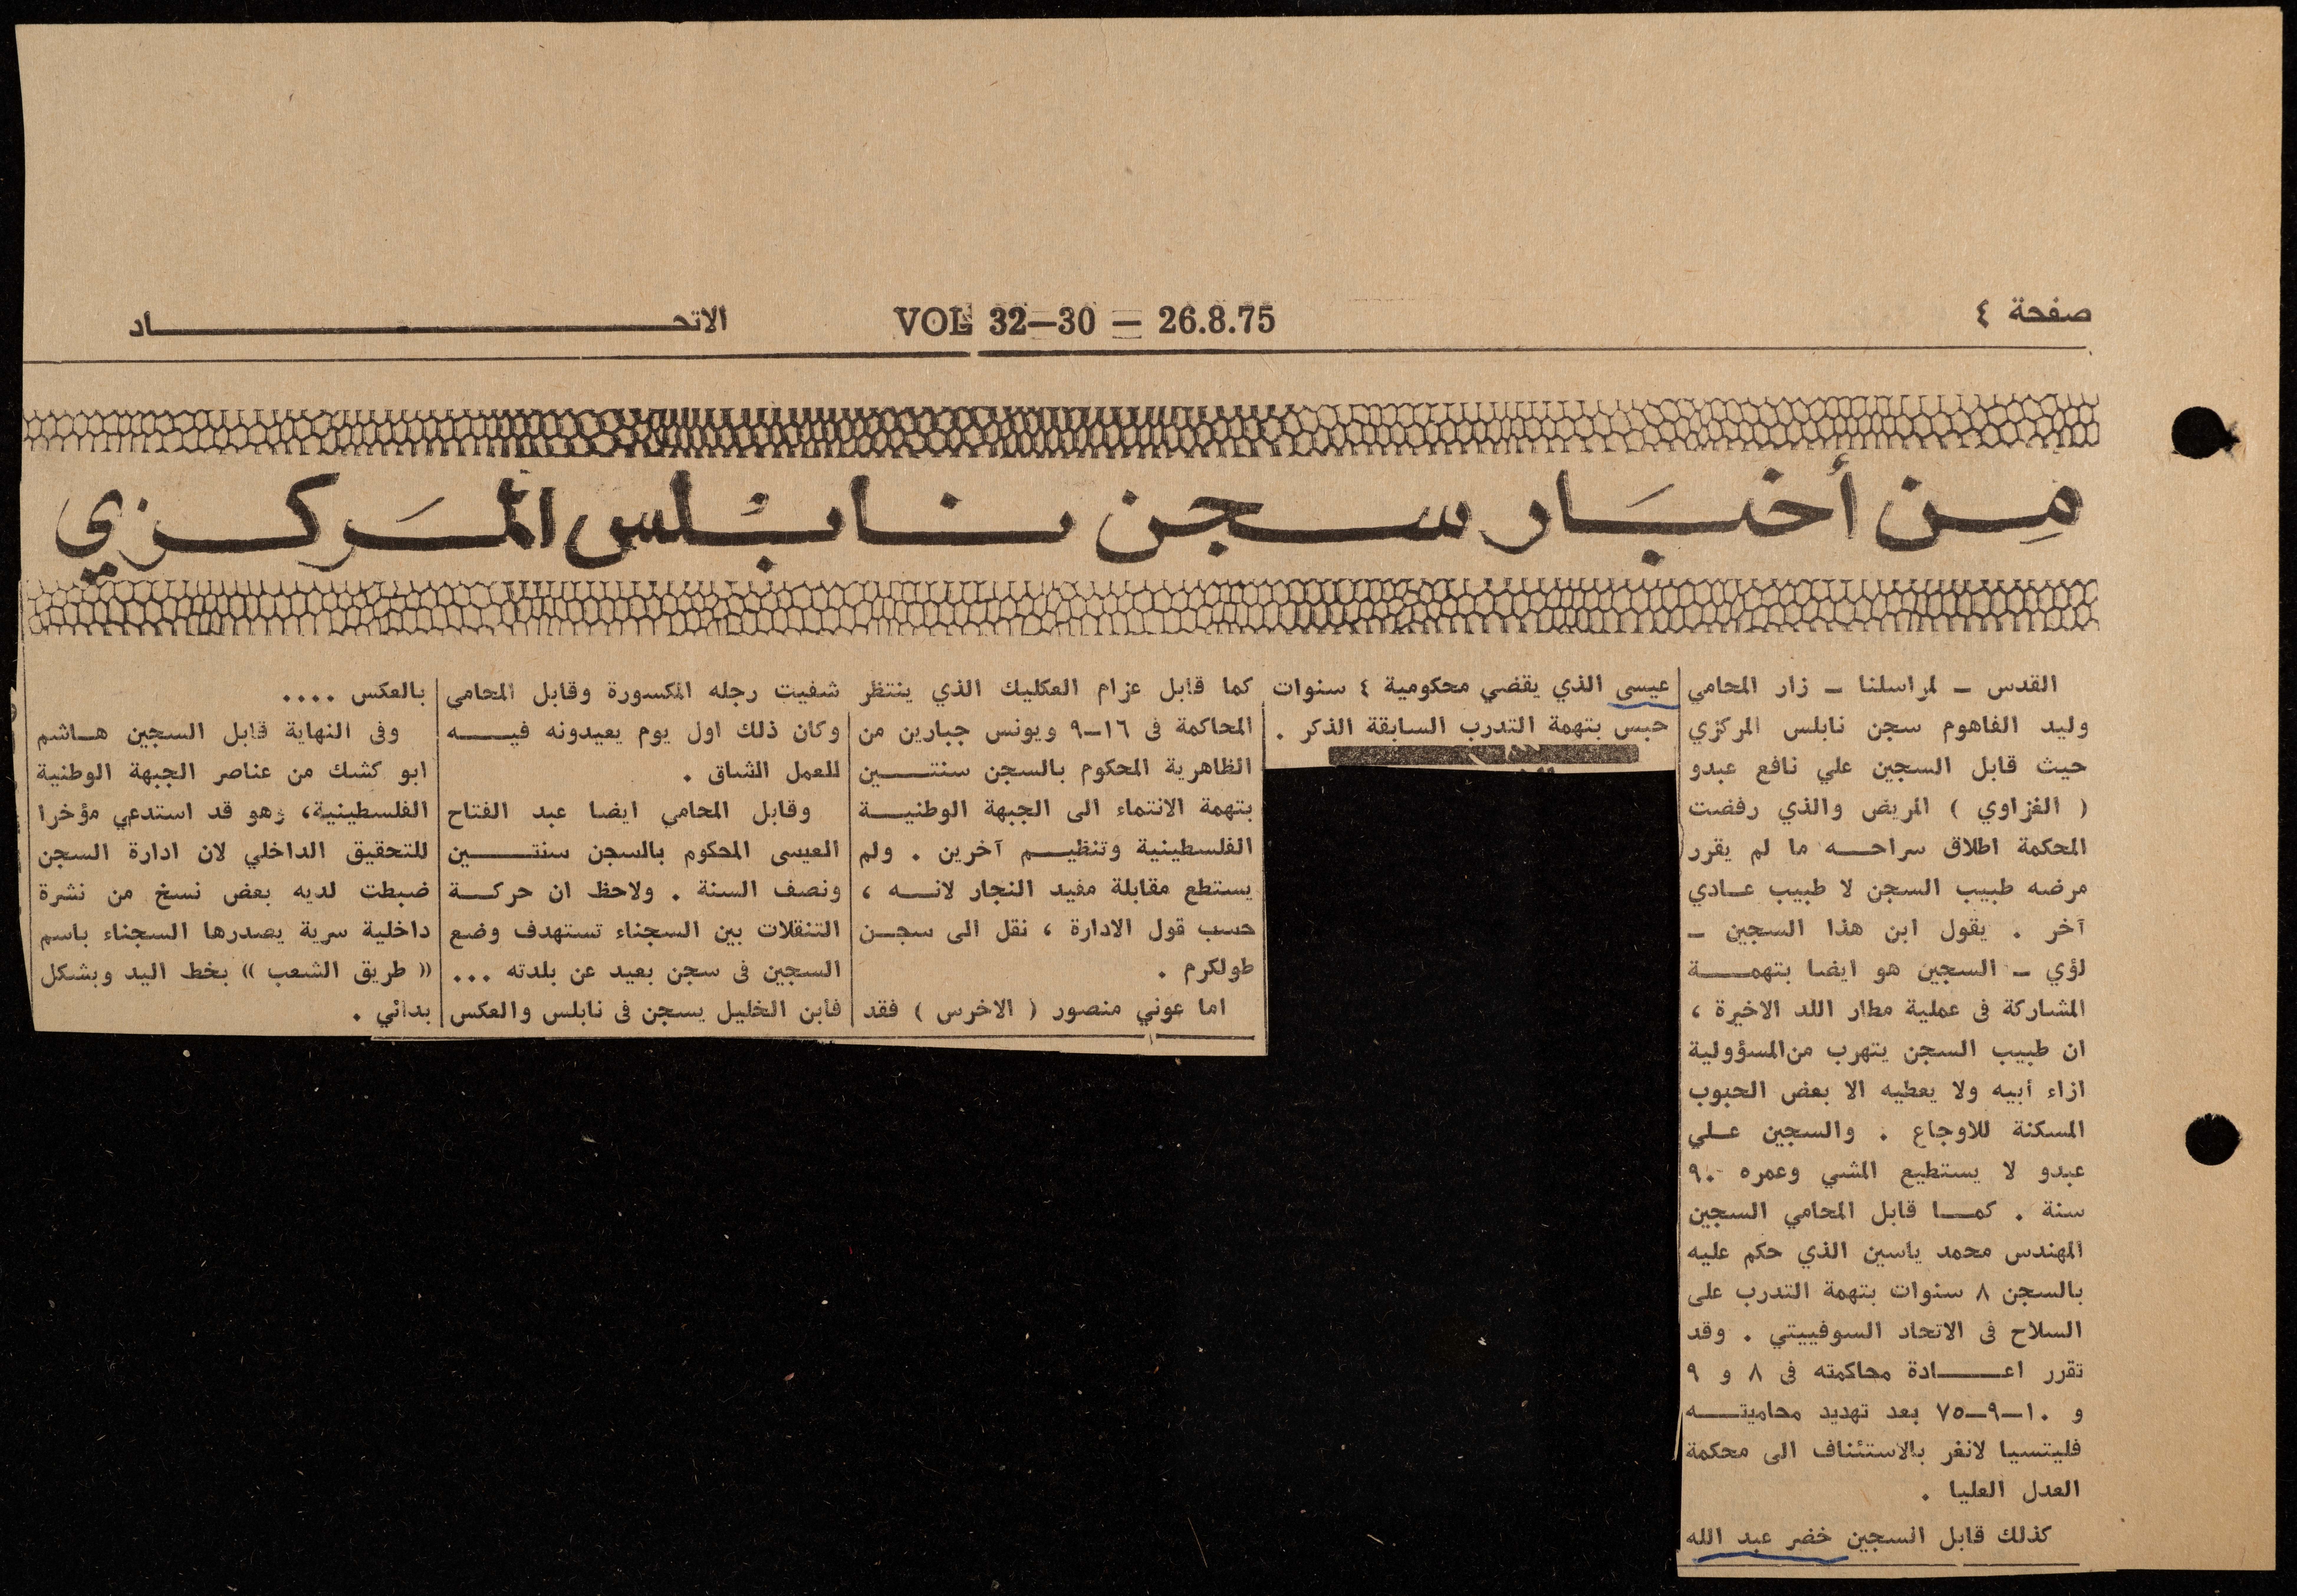 صفحة ٤
VOL 32—30 — 26.8.75
الاتحـــــاد
مِن أخبَار سجن نابْلس المَركزي
القدس ـ لمراسلنا ـ زار المحامي
وليد الفاهوم سجن نابلس المركزي
حيث قابل السجين علي نافع عبدو
( الغزاوي ) المريض والذي رفضت
المحكمة اطلاق سراحـــه ما لم يقرر
مرضه طبيب السجن لا طبيب عــادي
آخر . يقول ابن هذا السجين ـ
لؤي ـ السجين هو ايضا بتهمــــة
المشاركة في عملية مطار اللد الاخيرة ،
ان طبيب السجن يتهرب من المسؤولية
ازاء أبيه ولا يعطيه الا بعض الحبوب
المسكنة للاوجاع . والسجين عــلي
عبدو لا يستطيع المشي وعمره ٩٠
سنة . كمــا قابل المحامي السجين
المهندس محمد ياسين الذي حكم عليه
بالسجن ٨ سنوات بتهمة التدرب على
السلاح في الاتحاد السوفييتي . وقد
تقرر اعـــــادة محاكمته في ٨ و ٩
و ١٠ـ٩ـ٧٥ بعد تهديد محاميتـــه
فليتسيا لانغر بالاستئناف الى محكمة
العدل العليا .
كذلك قابل السجين خضر عبد الله
عيسى الذي يقضي محكومية ٤ سنوات
حبس بتهمة التدرب السابقة الذكر .
كما قابل عزام العكليك الذي ينتظر
المحاكمة في ١٦ـ٩ ويونس جبارين من
الظاهرية المحكوم بالسجن سنتـــــين
بتهمة الانتماء الى الجبهة الوطنيـــة
الفلسطينية وتنظيـــم آخرين . ولم
يستطع مقابلة مفيد النجار لانـــه ،
حسب قول الادارة ، نقل الى سجــن
طولكرم .
اما عوني منصور ( الاخرس ) فقد
شفيت رجله المكسورة وقابل المحامي
وكان ذلك اول يوم يعيدونه فيـــــه
للعمل الشاق .
وقابل المحامي ايضا عبد الفتاح
العيسى المحكوم بالسجن سنتـــــين
ونصف السنة . ولاحظ ان حركـــة
التنقلات بين السجناء تستهدف وضع
السجين في سجن بعيد عن بلدته ...
فابن الخليل يسجن في نابلس والعكس
بالعكس ....
وفي النهاية قابل السجين هــاشم
ابو كشك من عناصر الجبهة الوطنية
الفلسطينية، وهو قد استدعي مؤخرا
للتحقيق الداخلي لان ادارة السجن
ضبطت لديه بعض نسخ من نشرة
داخلية سرية يصدرها السجناء باسم
(( طريق الشعب )) بخط اليد وبشكل
بدائي .